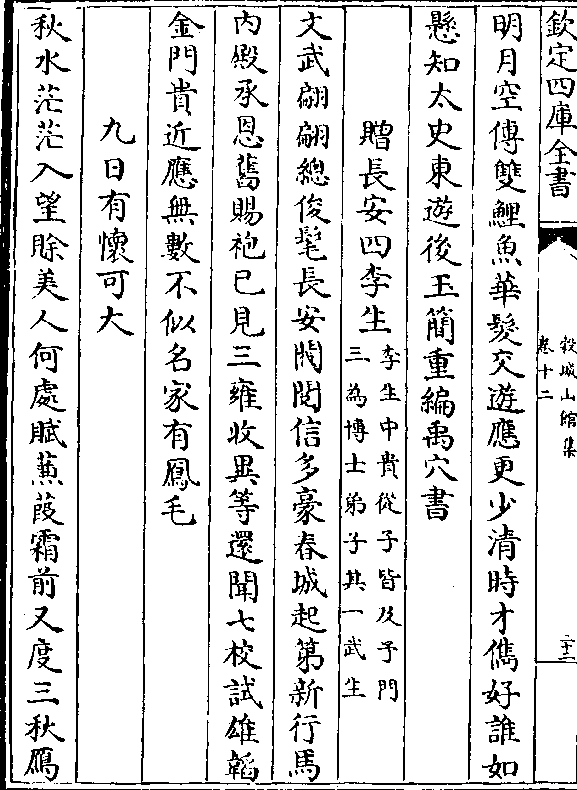 欽定四庫全書
穀城山館集
卷十二
二十二
明月空傳雙鯉魚華髮交遊應更少清時才儁好誰如
懸知太史東遊後玉簡重編禹穴書
贈長安四李生
李生中貴從子皆及予門
三為博士弟子其一武生
文武翩翩總俊髦長安閥閱信多豪春城起第新行馬
內殿承恩舊賜袍已見三雍收異等還聞七校試雄韜
金門貴近應無數不似名家有鳳毛
九日有懷可大
秋水茫茫入望賒美人何處賦蒹葭霜前又度三秋鴈